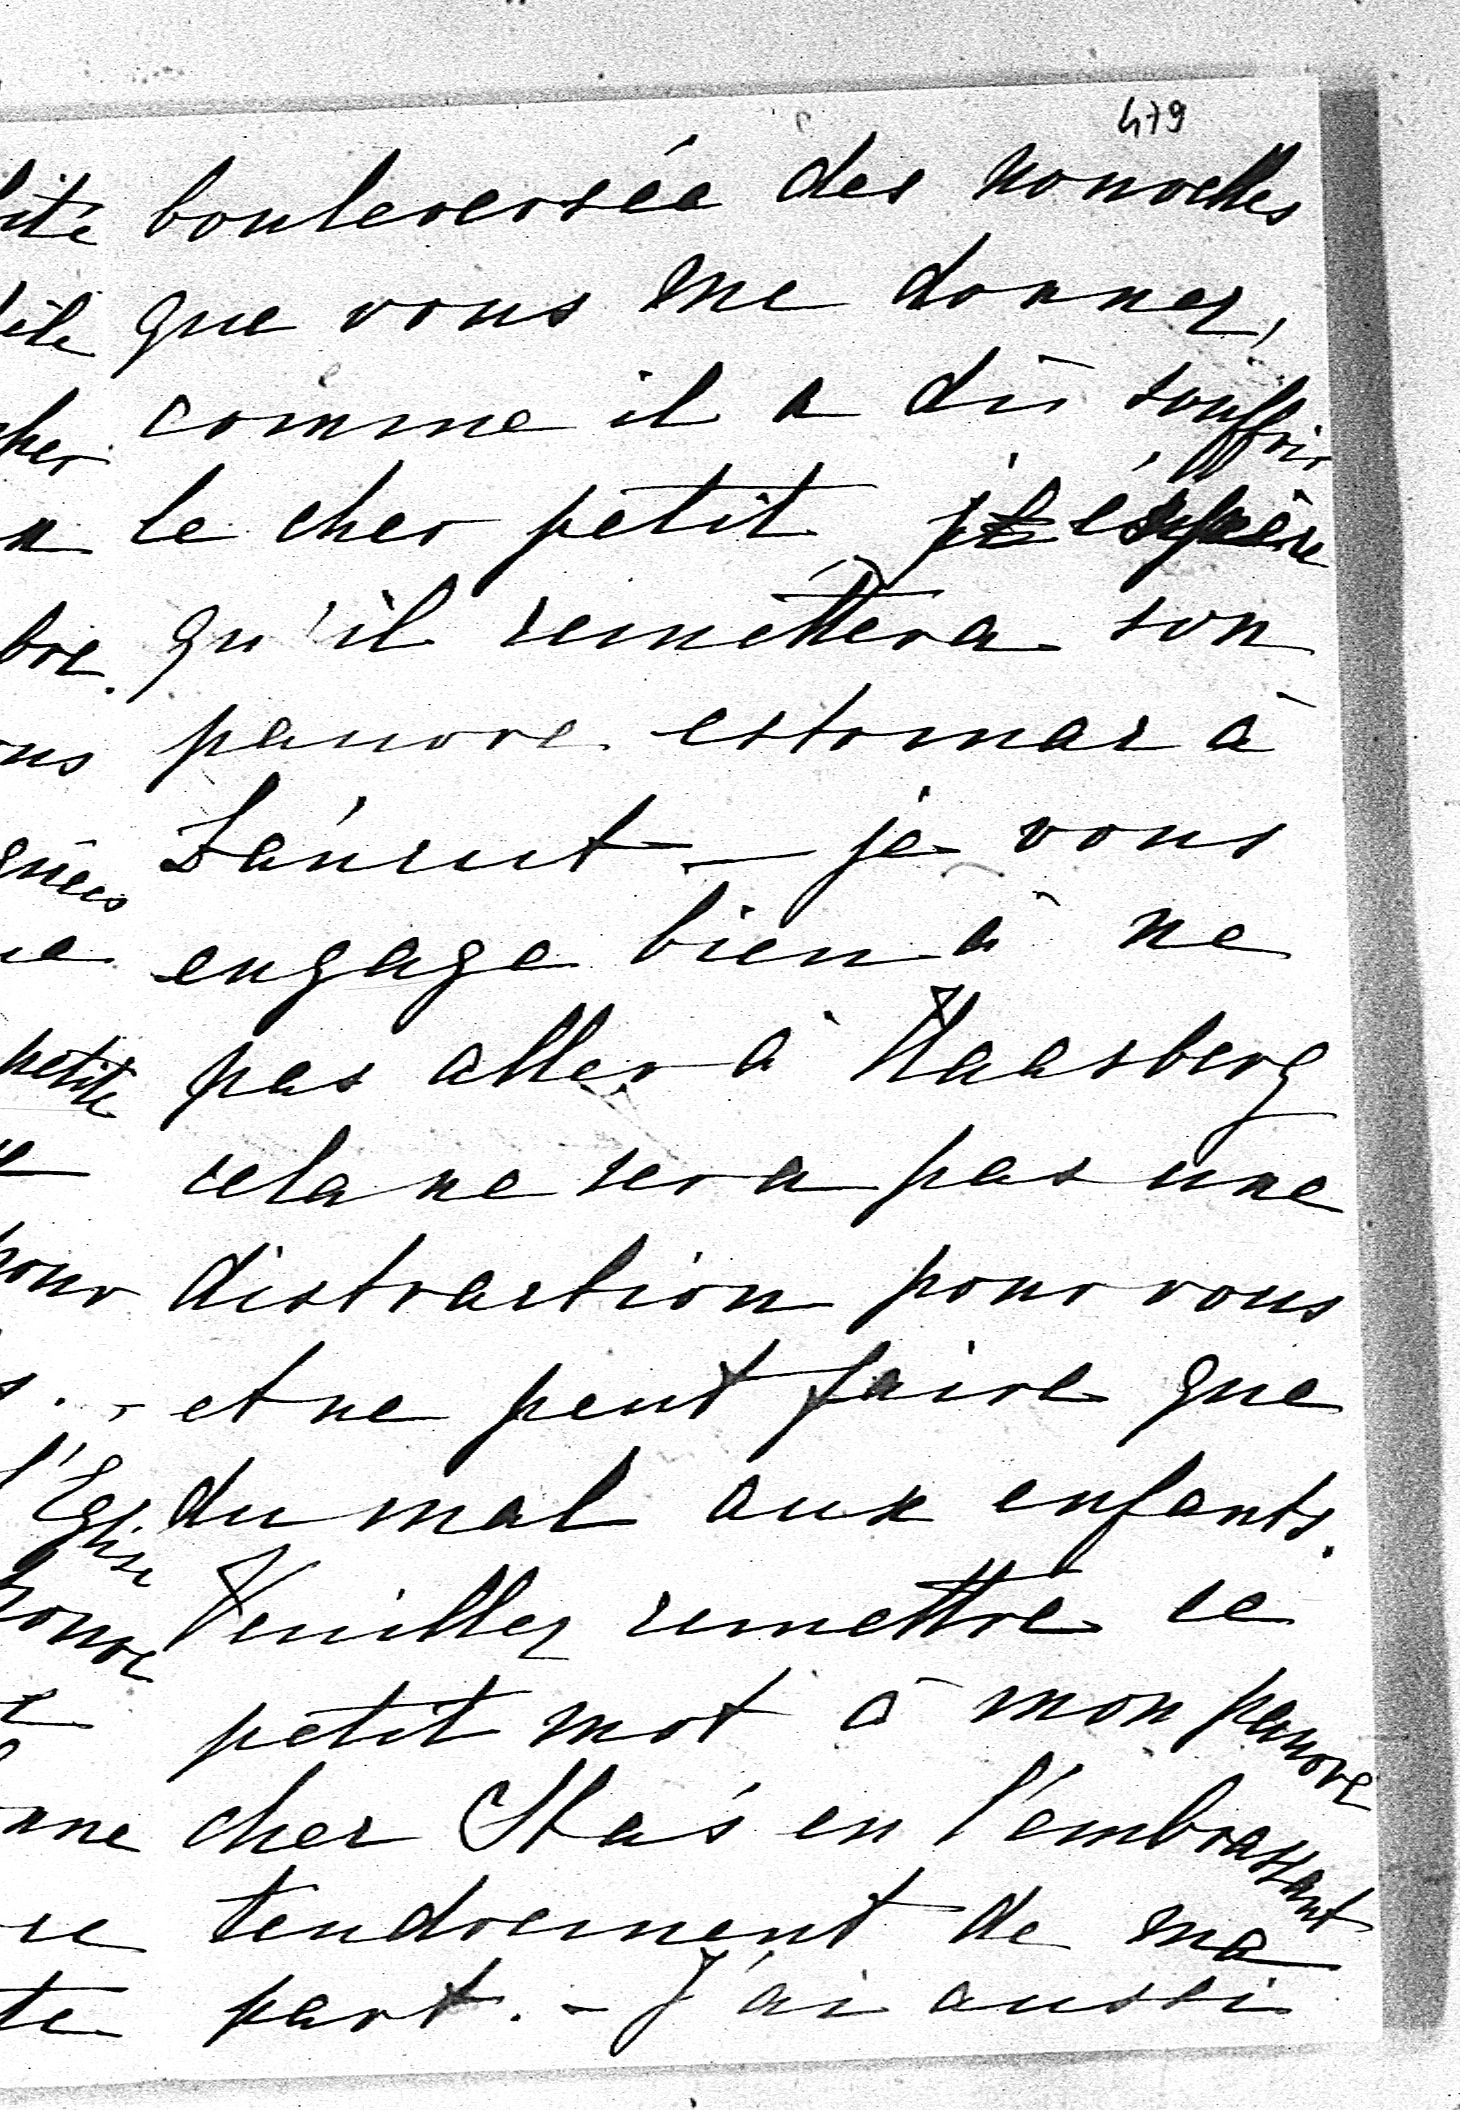 479
bouleversée des nouvelles
que vous me donnez,
comme il a dû souffrir
le cher petit j'espère
qu'il remettera son
pauvre estomac à
Łańcut — je vous
engage bien à ne
pas aller à Haasberg
cela ne sera pas une
distraction pour vous
et ne peut faire que
du mal aux enfants.
Veuillez remettre ce
petit mot à mon pauvre
cher Staś en l'embrassant
tendrement de ma
part. - J'ai aussi